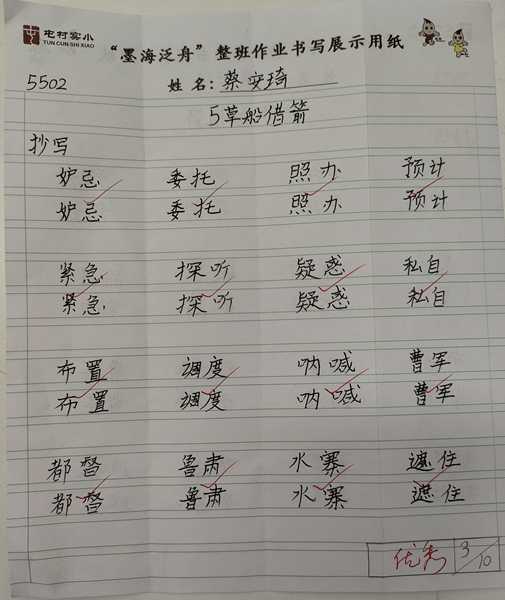 屯村实小
TUN CUN SHI XIAO
“墨海泛舟”整班作业书写展示用纸
5502 姓名：蔡安琦
5草船借箭
抄写
妒忌 委托 照办 预计
妒忌 委托 照办 预计
紧急 探听 疑惑 私自
紧急 探听 疑惑 私自
布置 调度 呐喊 曹军
布置 调度 呐喊 曹军
都督 鲁肃 水寨 遮住
都督 鲁肃 水寨 遮住
优秀 3/10